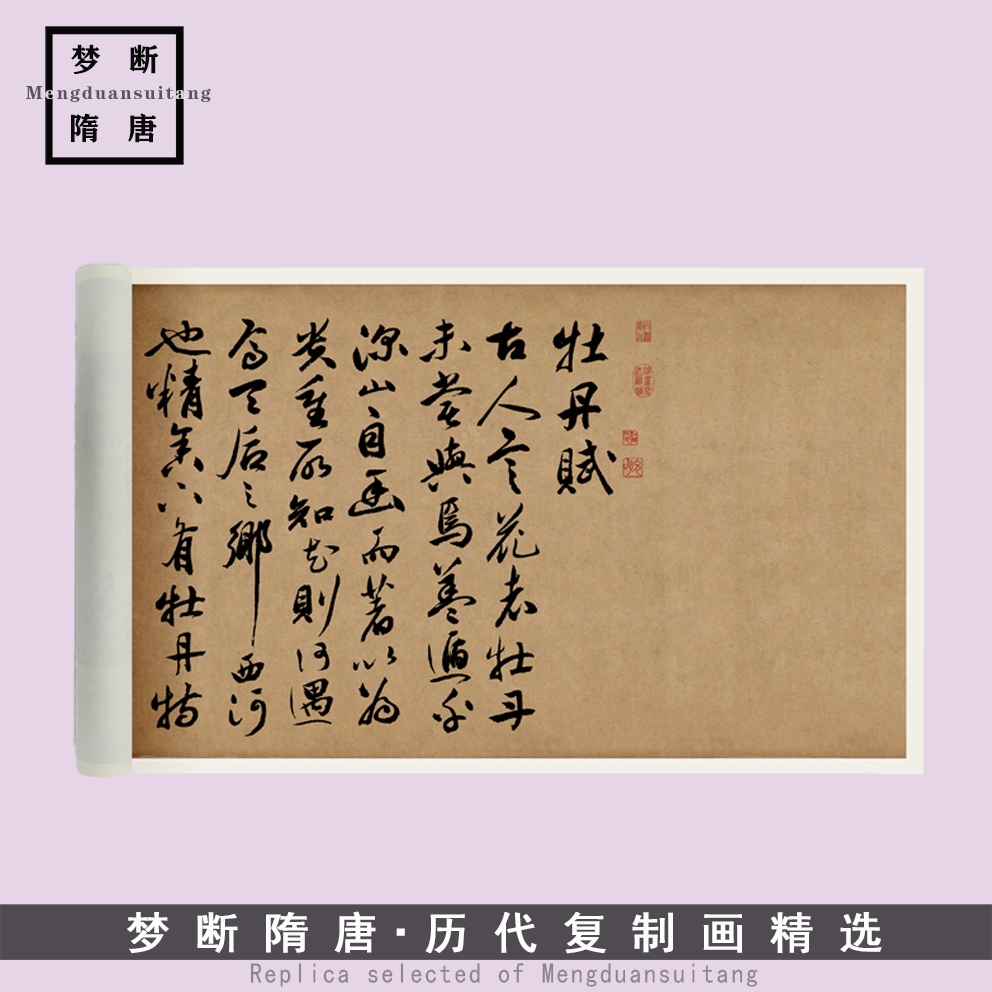 梦断
Mengduansuitang
隋唐
牡丹賦
古人言花者牡丹
未嘗與焉蓋遁乎
深山自幽而著以為
貴重所知花則何遇
焉天后之鄉西河
也精舍下有牡丹特
梦断隋唐·历代复制画精选
Replica selected of Mengduansuitang